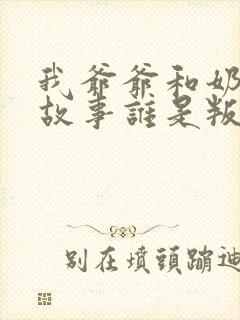 我爺爺和奶
故事誰是叛
別在墳頭蹦迪